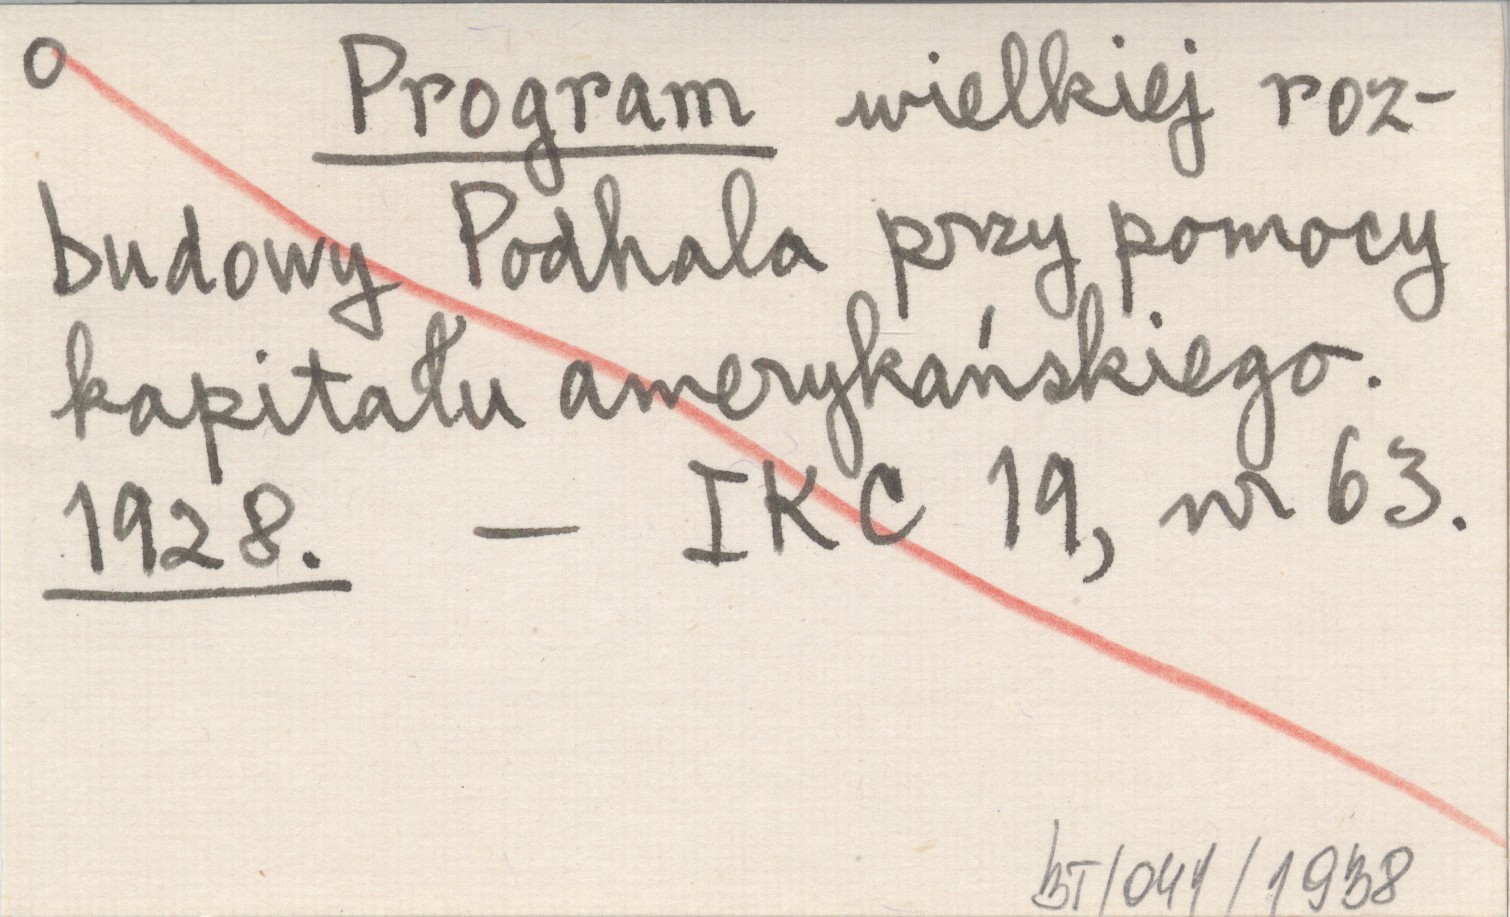 o Program wielkiej roz-
budowy Podhala przy pomocy
kapitału amerykańskiego.
1928. — IKC 19, nr 63.
BT/041/1938